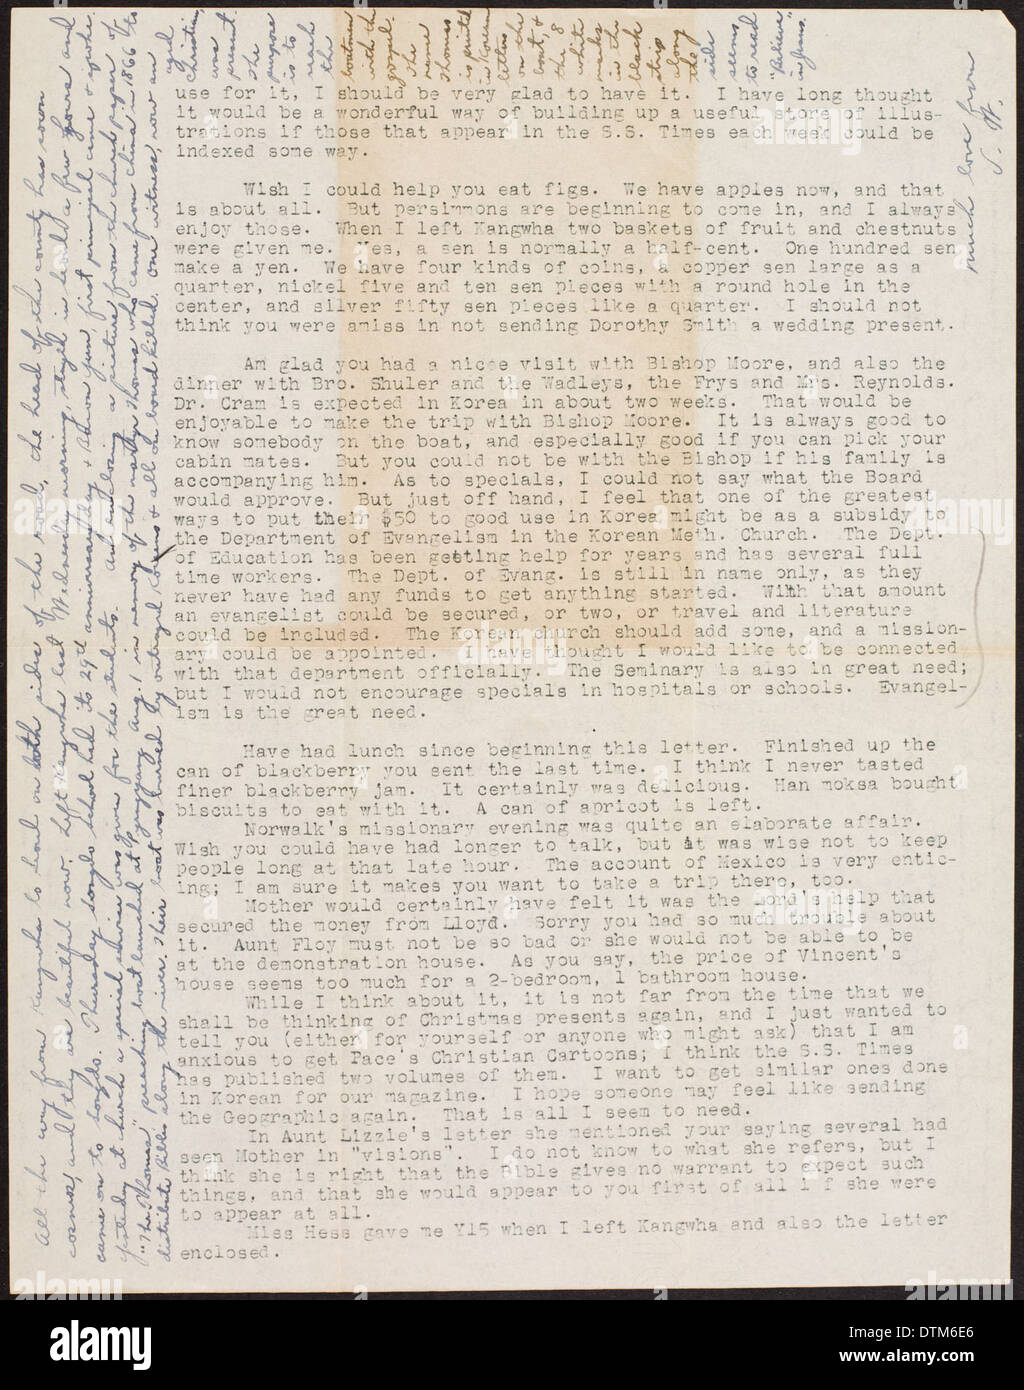 use for it, I should be very glad to have it.  I have long thought
it would be a wonderful way of building up a useful store of illus-
trations if those that appear in the S.S. Times each week could be
indexed some way.
Wish I could help you eat figs.  We have apples now, and that
is about all.  But persimmons are beginning to come in, and I always
enjoy those.  When I left Kangwha two baskets of fruit and chestnuts
were given me.  Yes, a sen is normally a half-cent.  One hundred sen
make a yen.  We have four kinds of coins, a copper sen large as a
quarter, nickel five and ten sen pieces with a round hole in the
center, and silver fifty sen pieces like a quarter.  I should not
think you were amiss in not sending Dorothy Smith a wedding present.
Am glad you had a nicee visit with Bishop Moore, and also the
dinner with Bro. Shuler and the Wadleys, the Frys and Mrs. Reynolds.
Dr. Cram is expected in Korea in about two weeks.  That would be
enjoyable to make the trip with Bishop Moore.  It is always good to
know somebody on the boat, and especially good if you can pick your
cabin mates.  But you could not be with the Bishop if his family is
accompanying him.  As to specials, I could not say what the Board
would approve.  But just off hand, I feel that one of the greatest
ways to put their $50 to good use in Korea might be as a subsidy to
the Department of Evangelism in the Korean Meth. Church.  The Dept.
of Education has been getting help for years and has several full
time workers.  The Dept. of Evang. is still in name only, as they
never have had any funds to get anything started.  With that amount
an evangelist could be secured, or two, or travel and literature
could be included.  The Korean church should add some, and a mission-
ary could be appointed.  I have thought I would like to be connected
with that department officially.  The Seminary is also in great need;
but I would not encourage specials in hospitals or schools.  Evangel-
ism is the great need.
Have had lunch since beginning this letter.  Finished up the
can of blackberry you sent the last time.  I think I never tasted
finer blackberry jam.  It certainly was delicious.  Han moksa bought
biscuits to eat with it.  A can of apricot is left.
Norwalk's missionary evening was quite an elaborate affair.
Wish you could have had longer to talk, but it was wise not to keep
people long at that late hour.  The account of Mexico is very entic-
ing; I am sure it makes you want to take a trip there, too.
Mother would certainly have felt it was the Lord's help that
secured the money from Lloyd.  Sorry you had so much trouble about
it.  Aunt Floy must not be so bad or she would not be able to be
at the demonstration house.  As you say, the price of Vincent's
house seems too much for a 2-bedroom, 1 bathroom house.
While I think about it, it is not far from the time that we
shall be thinking of Christmas presents again, and I just wanted to
tell you (either for yourself or anyone who might ask) that I am
anxious to get Pace's Christian Cartoons; I think the S.S. Times
has published two volumes of them.  I want to get similar ones done
in Korean for our magazine.  I hope someone may feel like sending
the Geographic again.  That is all I seem to need.
In Aunt Lizzie's letter she mentioned your saying several had
seen Mother in "visions".  I do not know to what she refers, but I
think she is right that the Bible gives no warrant to expect such
things, and that she would appear to you first of all i f she were
to appear at all.
Miss Hess gave me Y15 when I left Kangwha and also the letter
enclosed.
All the way from Kangwha to Seoul on both sides of the road, the head of the county has sown
cosmos, and they are beautiful now. Left Kangwha last Wednesday morning, stayed in Seoul a few hours and
came on to Songdo. Thursday Songdo school had its 29th anniversary day & Baron Yun, first principal came & spoke.
yesterday at church a special service was given for the students. Am enclosing a picture from the church paper of
"The Thomas," preaching boat launched at Pyengyang Aug. 1 in memory of the martyr Thomas who came from China in 1866 to
distribute Bibles along the river. Their boat was burned by outraged Koreans & all on board killed. One witness, now an
aged
Christian,
was
present.
The
purpose
is to
reach
the
boatmen
with the
gospel.
The
name
Thomas
is printed
in Korean
letters
on the
boat, &
the 8
white
marks
in the
black
strip
along
the
side
seems
to read
"Believe
in Jesus."
Much love from
S. W.
alamy
alamy
DTM6E6
www.alamy.com